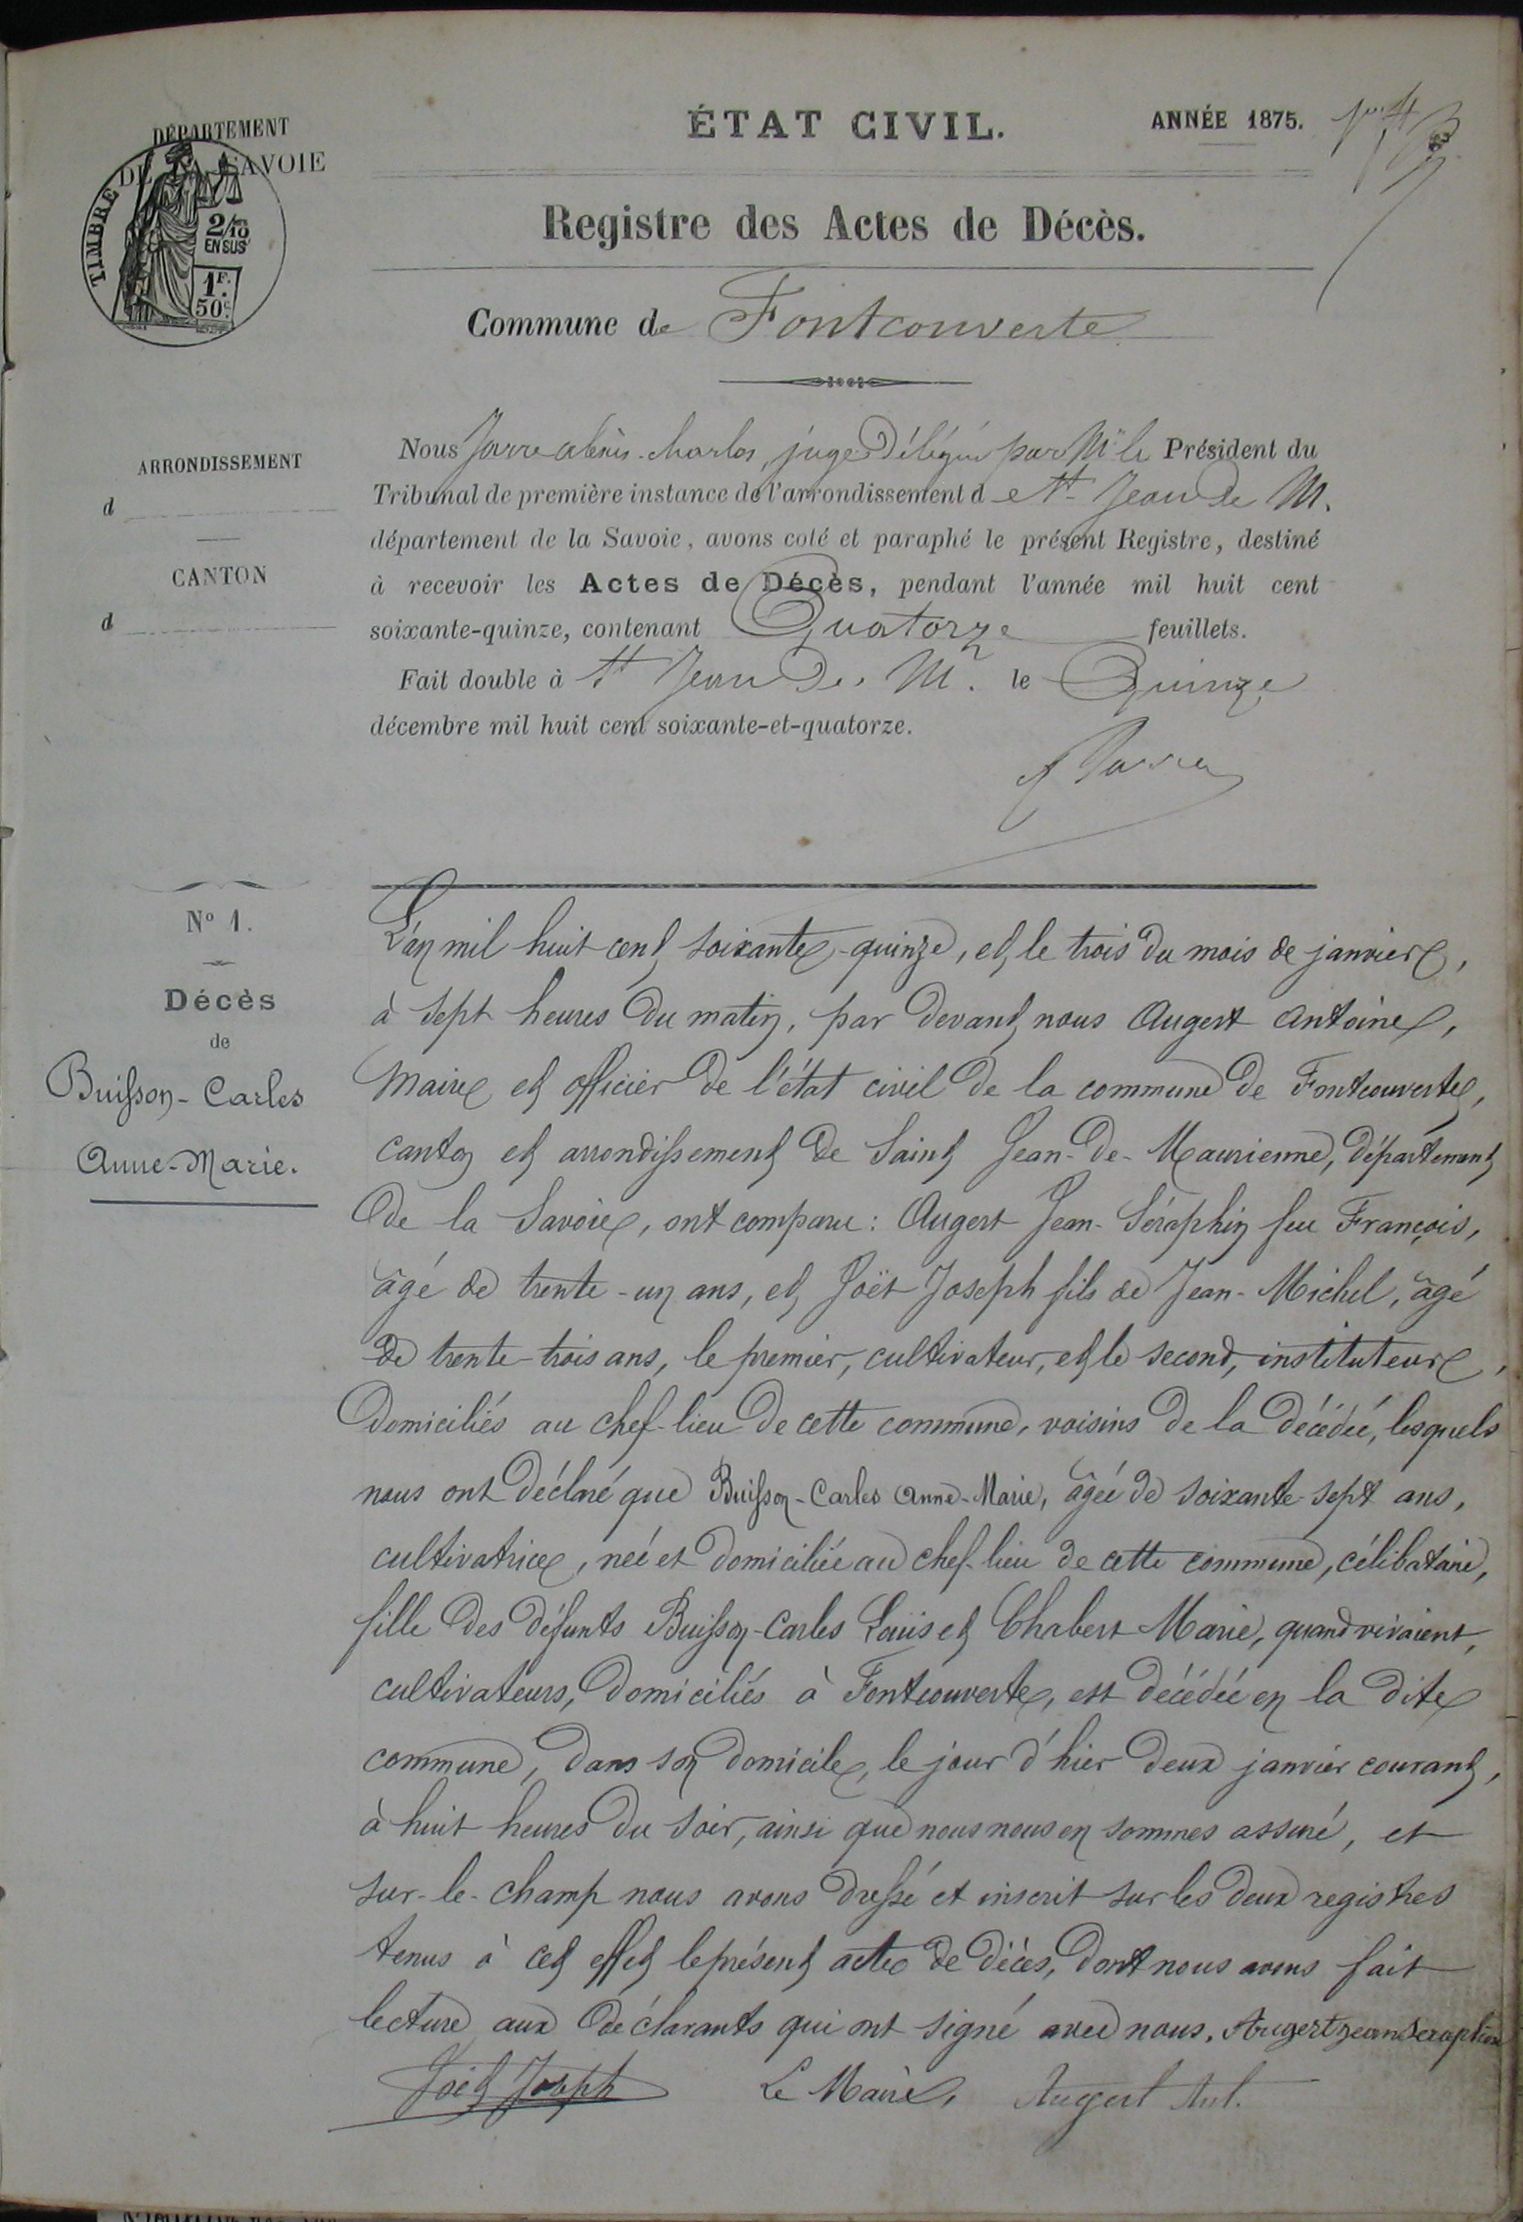 DÉPARTEMENT
DE LA SAVOIE
TIMBRE
2/10
EN SUS
1F.
50c.
ÉTAT CIVIL.
ANNÉE 1875.
Registre des Actes de Décès.
Commune de Fontcouverte
ARRONDISSEMENT
d
CANTON
d
Nous Jarre alexis-charles, juge Délégué par Mr le Président du
Tribunal de première instance de l'arrondissement de St Jean de M.
département de la Savoie, avons coté et paraphé le présent Registre, destiné
à recevoir les Actes de Décès, pendant l'année mil huit cent
soixante-quinze, contenant Quatorze feuillets.
Fait double à St Jean De M. le Quinze
décembre mil huit cent soixante-et-quatorze.
No 1.
Décès
de
Buisson-Carles
Anne-Marie.
L'an mil huit cent soixante-quinze, et le trois du mois de janvier,
à sept heures du matin, par devant nous Augert Antoine,
Maire et officier de l'état civil de la commune de Fontcouverte,
canton et arrondissement de Saint Jean-de-Maurienne, département
de la Savoie, ont comparu : Augert Jean-Séraphin feu François,
âgé de trente-un ans, et Joët Joseph fils de Jean-Michel, âgé
de trente-trois ans, le premier, cultivateur, et le second, instituteur,
domiciliés au chef-lieu de cette commune, voisins de la décédée, lesquels
nous ont déclaré que Buisson-Carles Anne-Marie, âgée de soixante-sept ans,
cultivatrice, née et domiciliée au chef-lieu de cette commune, célibataire,
fille des défunts Buisson-Carles Louis et Chabert Marie, quand vivaient,
cultivateurs, domiciliés à Fontcouverte, est décédée en la dite
commune, dans son domicile, le jour d'hier deux janvier courant,
à huit heures du soir, ainsi que nous nous en sommes assuré, et
sur-le-champ nous avons dressé et inscrit sur les deux registres
tenus à cet effet le présent acte de décès, dont nous avons fait
lecture aux déclarants qui ont signé avec nous. Augert jean Seraphin
Joët Joseph Le Maire, Augert Ant.